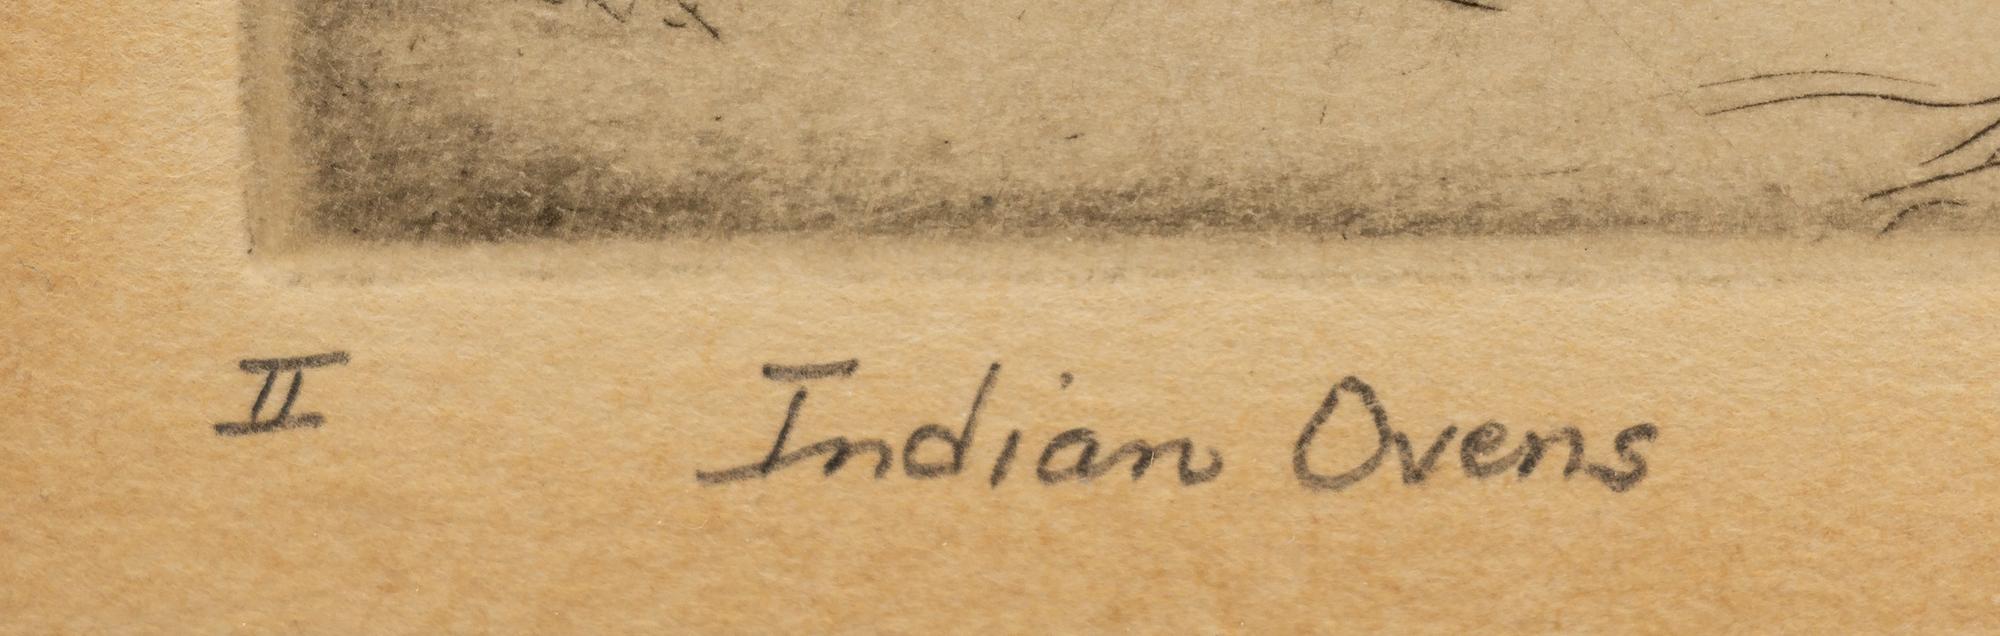 II Indian Ovens